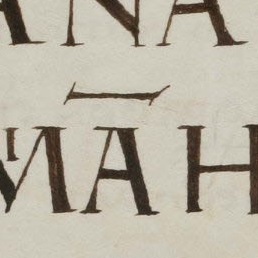 ANA
MAH